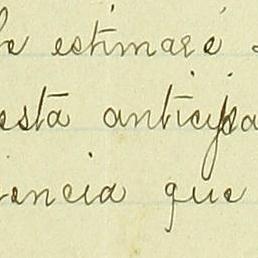 le estimaré
está anticipa
encia que